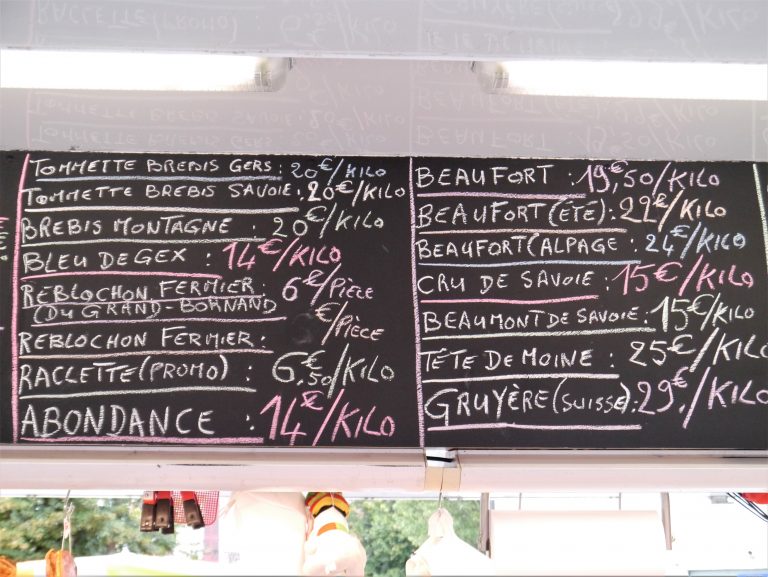 TOMMETTE BREBIS GERS : 20€/KILO
TOMMETTE BREBIS SAVOIE : 20€/KILO
BREBIS MONTAGNE : 20€/KILO
BLEU DE GEX : 14€/KILO
REBLOCHON FERMIER : 6€/PIÈCE
(DU GRAND-BORNAND
REBLOCHON FERMIER : €/PIÈCE
RACLETTE (PROMO) : 6€,50/KILO
ABONDANCE : 14€/KILO
BEAUFORT : 19€,50/KILO
BEAUFORT (ÉTÉ) : 22€/KILO
BEAUFORT (ALPAGE : 24€/KILO
CRU DE SAVOIE : 15€/KILO
BEAUMONT DE SAVOIE : 15€/KILO
TÊTE DE MOINE : 25€/KILO
GRUYÈRE (SUISSE) : 29€./KILO